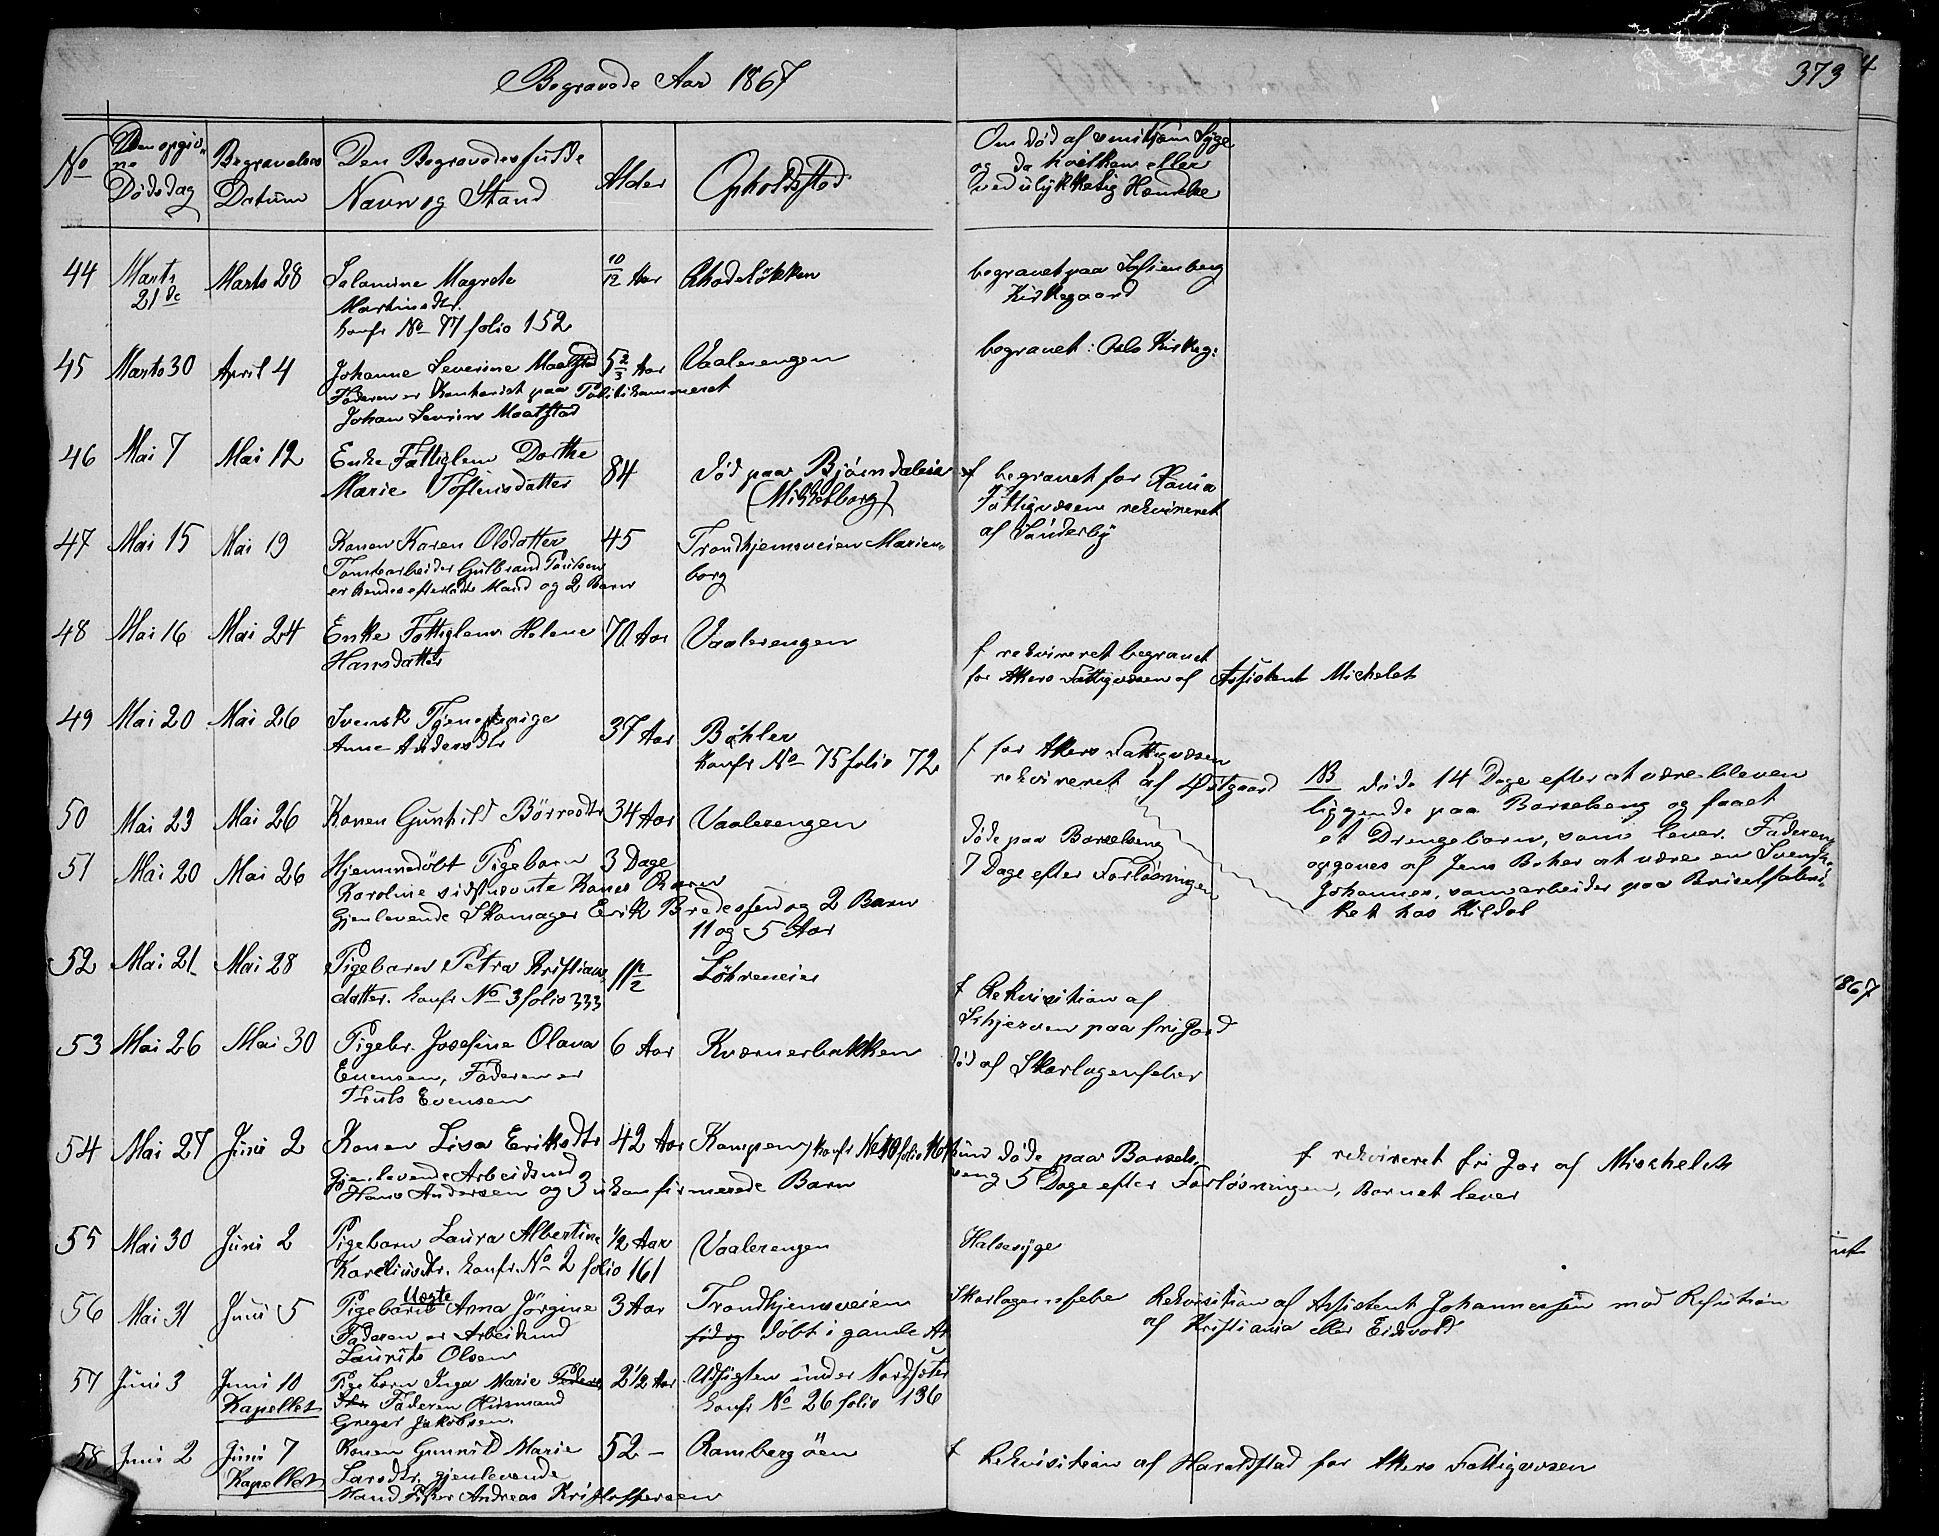 Begravede Aar 1867
373
No
Den opgiv-
ne
Dødsdag
Begravelses
Datum
Den Begravedes fulde
Navn og Stand
Alder
Opholdssted
Om død af smitsom Syge
og da hvilken eller
ved ulykkelig Hændelse
44 Marts 21de Marts 28 Salamine Magrete 10/12 Aar Rhodeløkken begravet paa Sofienberg
Martinsdtr. Kirkegaard
konfr No 77 folio 152
45 Marts 30 April 4 Johanne Severine Maatstad 5 2/3 Aar Vaalerengen begravet: Oslo Kirkeg:
Faderen er Kontorist paa Politikammeret
Johan Severin Maatstad
46 Mai 7 Mai 12 Enke Fattiglem Dorthe 84 død paa Bjørndaleie f begravet for
Marie Toflensdatter (Mikkelborg) Fattigvæsen rekvireret
af Sünderby
47 Mai 15 Mai 19 Konen Karen Olsdatter 45 Trondhjemsveien Marien-
Tomtearbeider Gulbrand Paulsen borg
er hendes efterladte Mand og 2 Barn
48 Mai 16 Mai 24 Enke Fattiglem Helene 70 Aar Vaalerengen f rekvireret begravet
Hansdatter for Akers Fattigvæsen af Assistent Michelet
49 Mai 20 Mai 26 Svensk Tjenestepige 37 Aar Bøhler f for Akers Fattigvæsen
Anne Andersdtr konfr No 75 folio 72 rekvireret af Østgaard
NB døde 14 Dage efter at være bleven
liggende paa Barselseng og faaet
et Drengebarn, som lever. Faderen
opgaves af Jens Baker at være en Svensk-
Johannes, som arbeider paa Brisselfabri-
ket hos Kildal
50 Mai 23 Mai 26 Konen Gunhild Børresdtr 34 Aar Vaalerengen døde paa Barselseng
7 Dage efter Forløsningen
51 Mai 20 Mai 26 Hjemmedøbt Pigebarn 3 Dage
Karoline sidstnævnte Kones Barn
Gjenlevende Skomager Erik Bredessen og 2 Barn
11 og 5 Aar
52 Mai 21 Mai 28 Pigebarn Petra Kristians- 1 1/2 Løkreneier f Rekvisition af
datter. konfr No 3 folio 333 Skjerven paa fri Jord
53 Mai 26 Mai 30 Pigebr. Josefine Olava 6 Aar Kværnerbakken død af Skarlagensfeber
Evensen, Faderen er
Truls Evensen
54 Mai 27 Juni 2 Konen Lisa Eriksdtr 42 Aar Kampen konfr No 10 folio døde paa Barsel- f rekvireret fri Jor af Mischelet
Gjenlevende Arbeidsmd seng 5 Dage efter Forløsningen, Barnet lever
Hans Andersen og 3 ukonfirmerede Barn
55 Mai 30 Juni 2 Pigebarn Laura Albertine 1/2 Aar Vaalerengen Halssyge
Kareliusdtr. konfr. No 2 folio 161
56 Mai 31 Juni 5 Pigebarn Uægte Anna Jørgine 3 Aar Trondhjemsveien Skarlagensfeber Rekvisition af Assistent Johannessen mod Refusion
Faderen er Arbeidsmd fød og døbt i gamle Ak af Kristiania eller Eidsvold
Laurits Olsen
57 Juni 3 Juni 10 Pigebarn Inga Marie 2 1/2 Aar Udsigten under Nordseter
Kapellet Faderen Husmand konfr No 26 folio 136
Greger Jakobsen.
58 Juni 2 Juni 7 Konen Gunnild Marie 52 - Rambergøen f Rekvisition af Haraldstad for Akers Fattigvæsen
Kapellet Larsdtr. gjenlevende
Mand Fisker Andreas Kristoffersen
1867